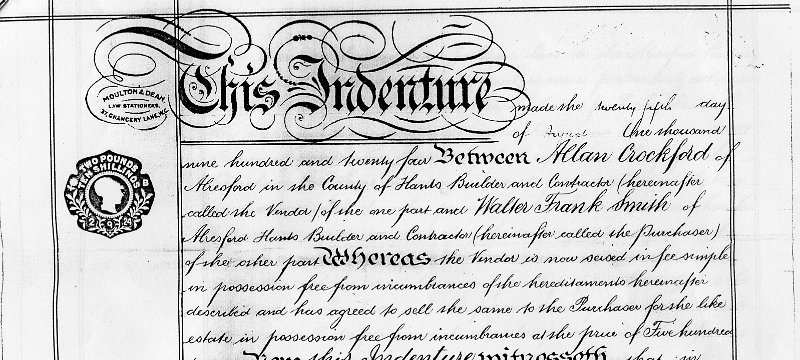 This Indenture made the twenty fifth day
MOULTON & DEAN,
LAW STATIONERS,
27, CHANCERY LANE, W.C.
of One thousand
nine hundred and twenty four Between Allan Crockford of
Alresford in the County of Hants Builder and Contractor (hereinafter
called the Vendor) of the one part and Walter Frank Smith of
Alresford Hants Builder and Contractor (hereinafter called the Purchaser)
of the other part Whereas the Vendor is now seised in fee simple
in possession free from incumbrances of the hereditaments hereinafter
described and has agreed to sell the same to the Purchaser for the like
estate in possession free from incumbrances at the price of Five hundred
Now this Indenture witnesseth that in
TWO POUNDS
TEN SHILLINGS